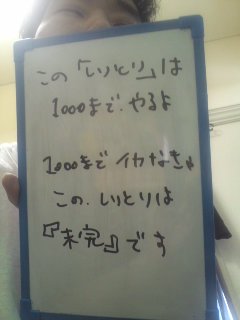 この「しりとり」は
1000まで.やるよ
1000まで イカなきゃ
この.しりとりは
『未完』です